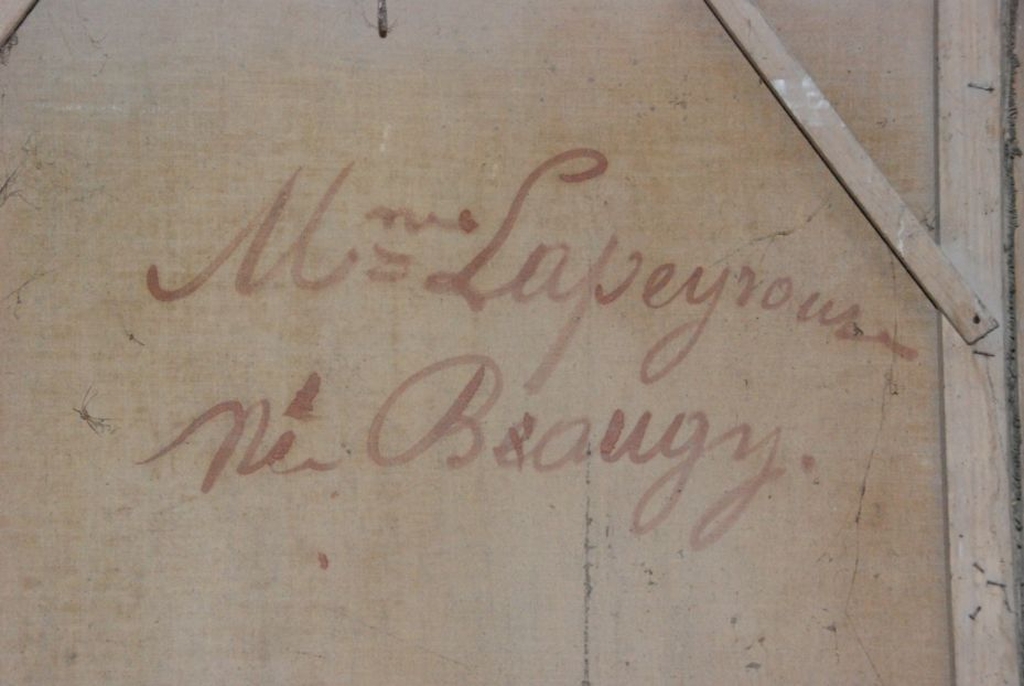 Mme Lapeyrouse
Né Beaugy.